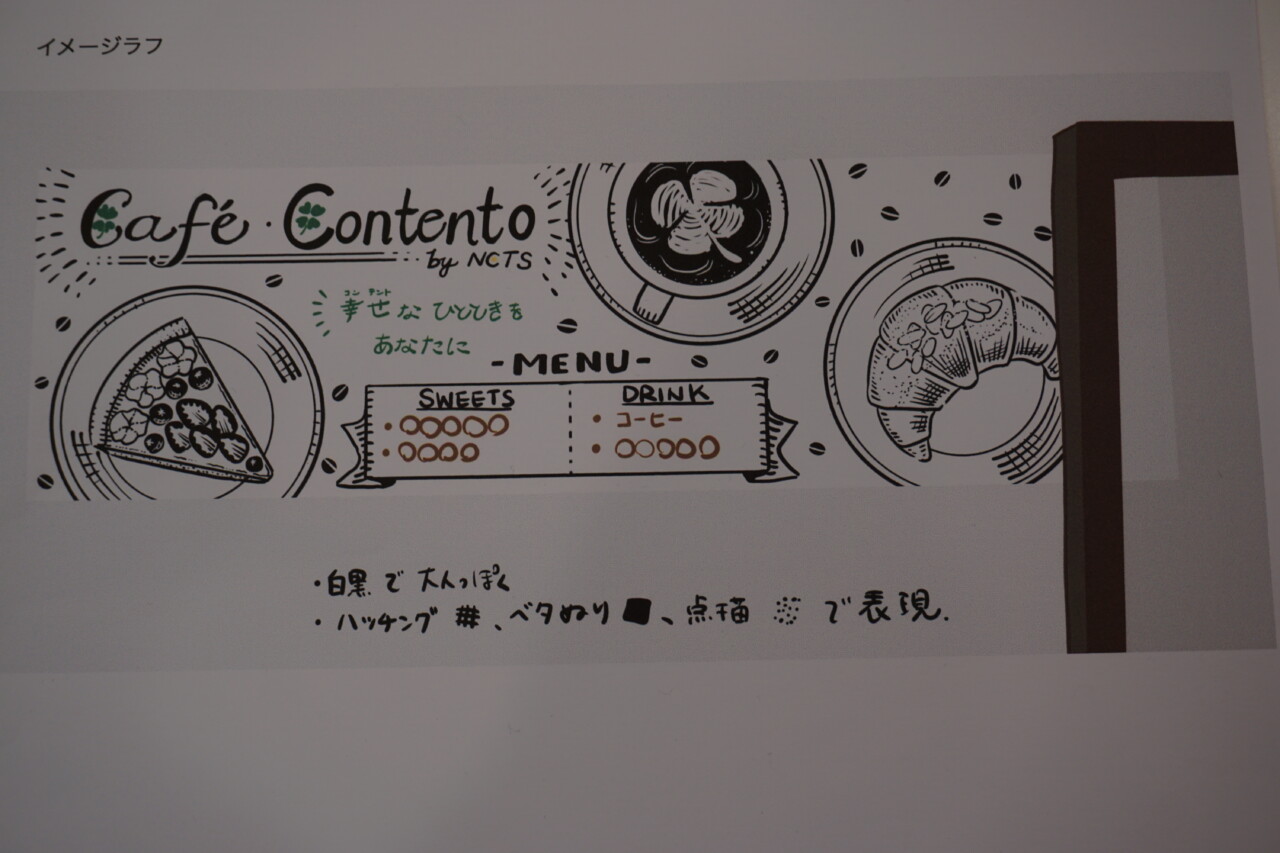 イメージラフ
Café・Contento
by NCTS
コンテント
幸せな ひとときを
あなたに
-MENU-
SWEETS
・○○○○○
・○○○○
DRINK
・コーヒー
・○○○○○
・白黒で大人っぽく
・ハッチング #、ベタぬり ■、点描 で表現.